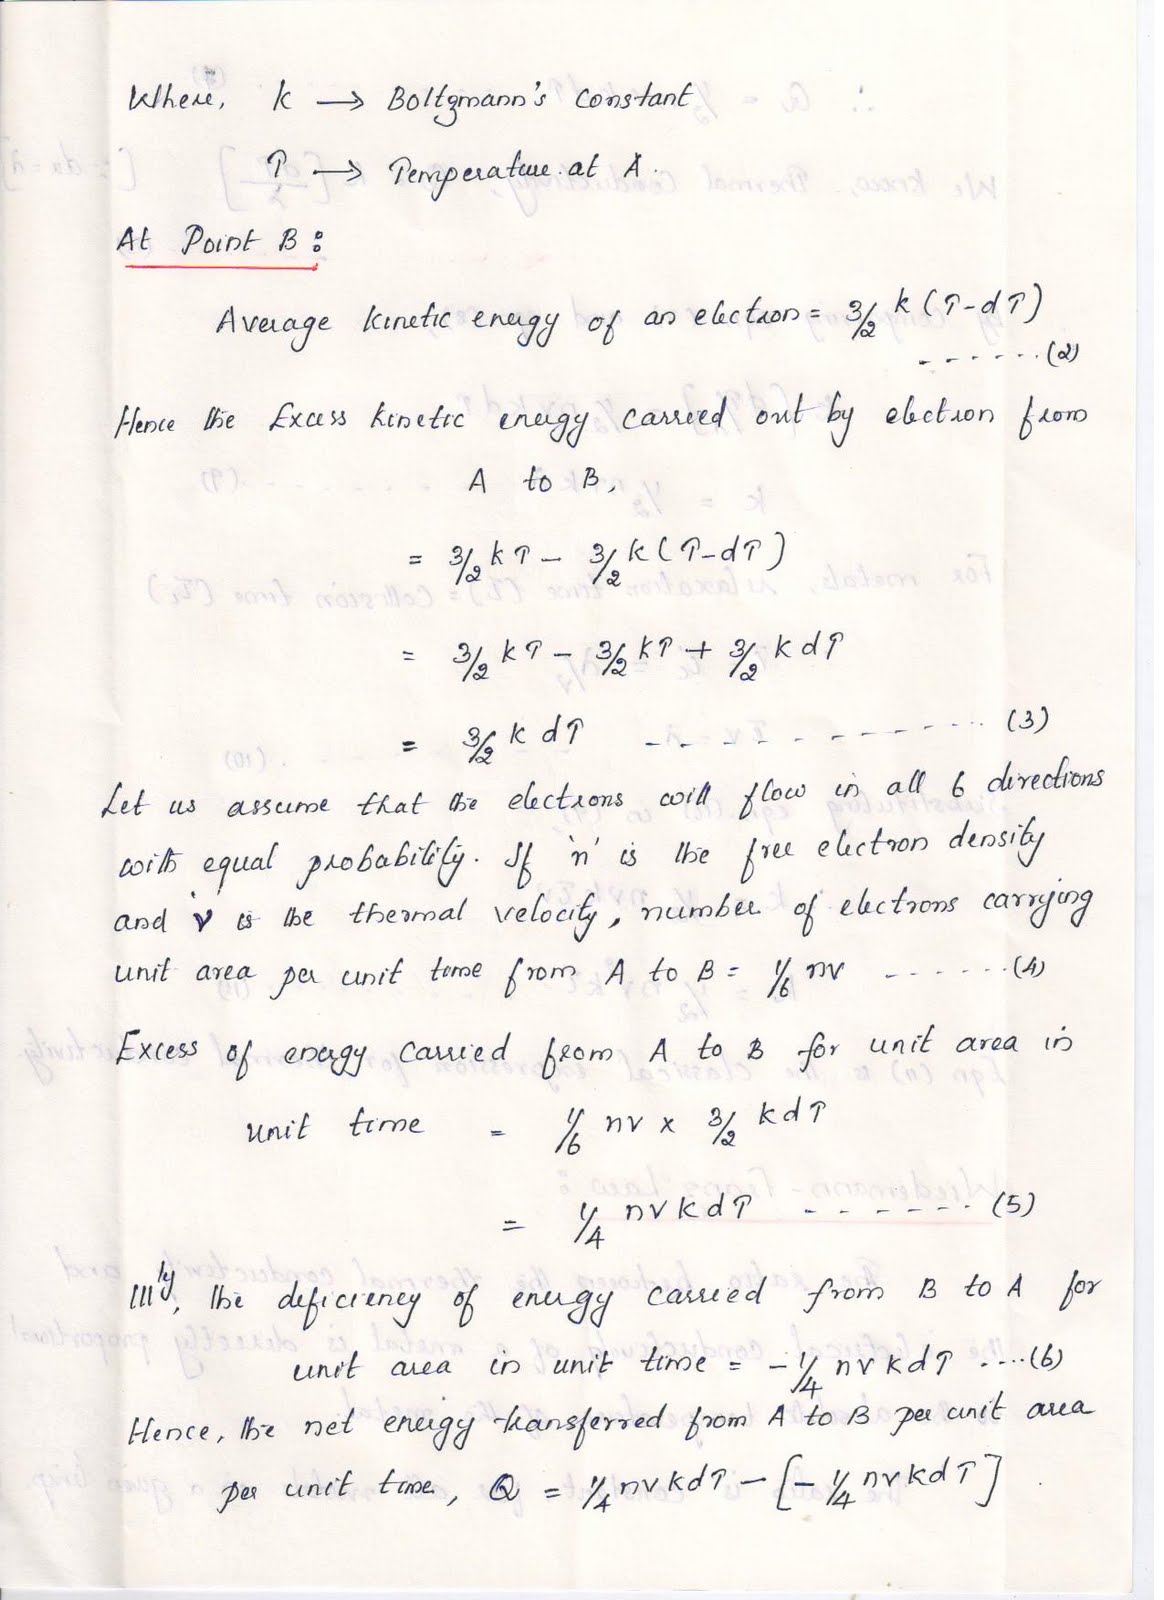 Where, k → Boltzmann's constant
T → Temperature at A.
At Point B:
Average kinetic energy of an electron = 3/2 k (T-dT)
------(2)
Hence the Excess kinetic energy carried out by electron from
A to B,
= 3/2 kT - 3/2 k (T-dT)
= 3/2 kT - 3/2 kT + 3/2 k dT
= 3/2 k dT ------------ (3)
Let us assume that the electrons will flow in all 6 directions
with equal probability. If 'n' is the free electron density
and v is the thermal velocity, number of electrons carrying
unit area per unit time from A to B = 1/6 nv ------(4)
Excess of energy carried from A to B for unit area in
unit time = 1/6 nv x 3/2 k dT
= 1/4 nvkdT ------ (5)
Illly, the deficiency of energy carried from B to A for
unit area in unit time = - 1/4 nvkdT ....(6)
Hence, the net energy transferred from A to B per unit area
per unit time, Q = 1/4 nvkdT - [- 1/4 nvkdT]